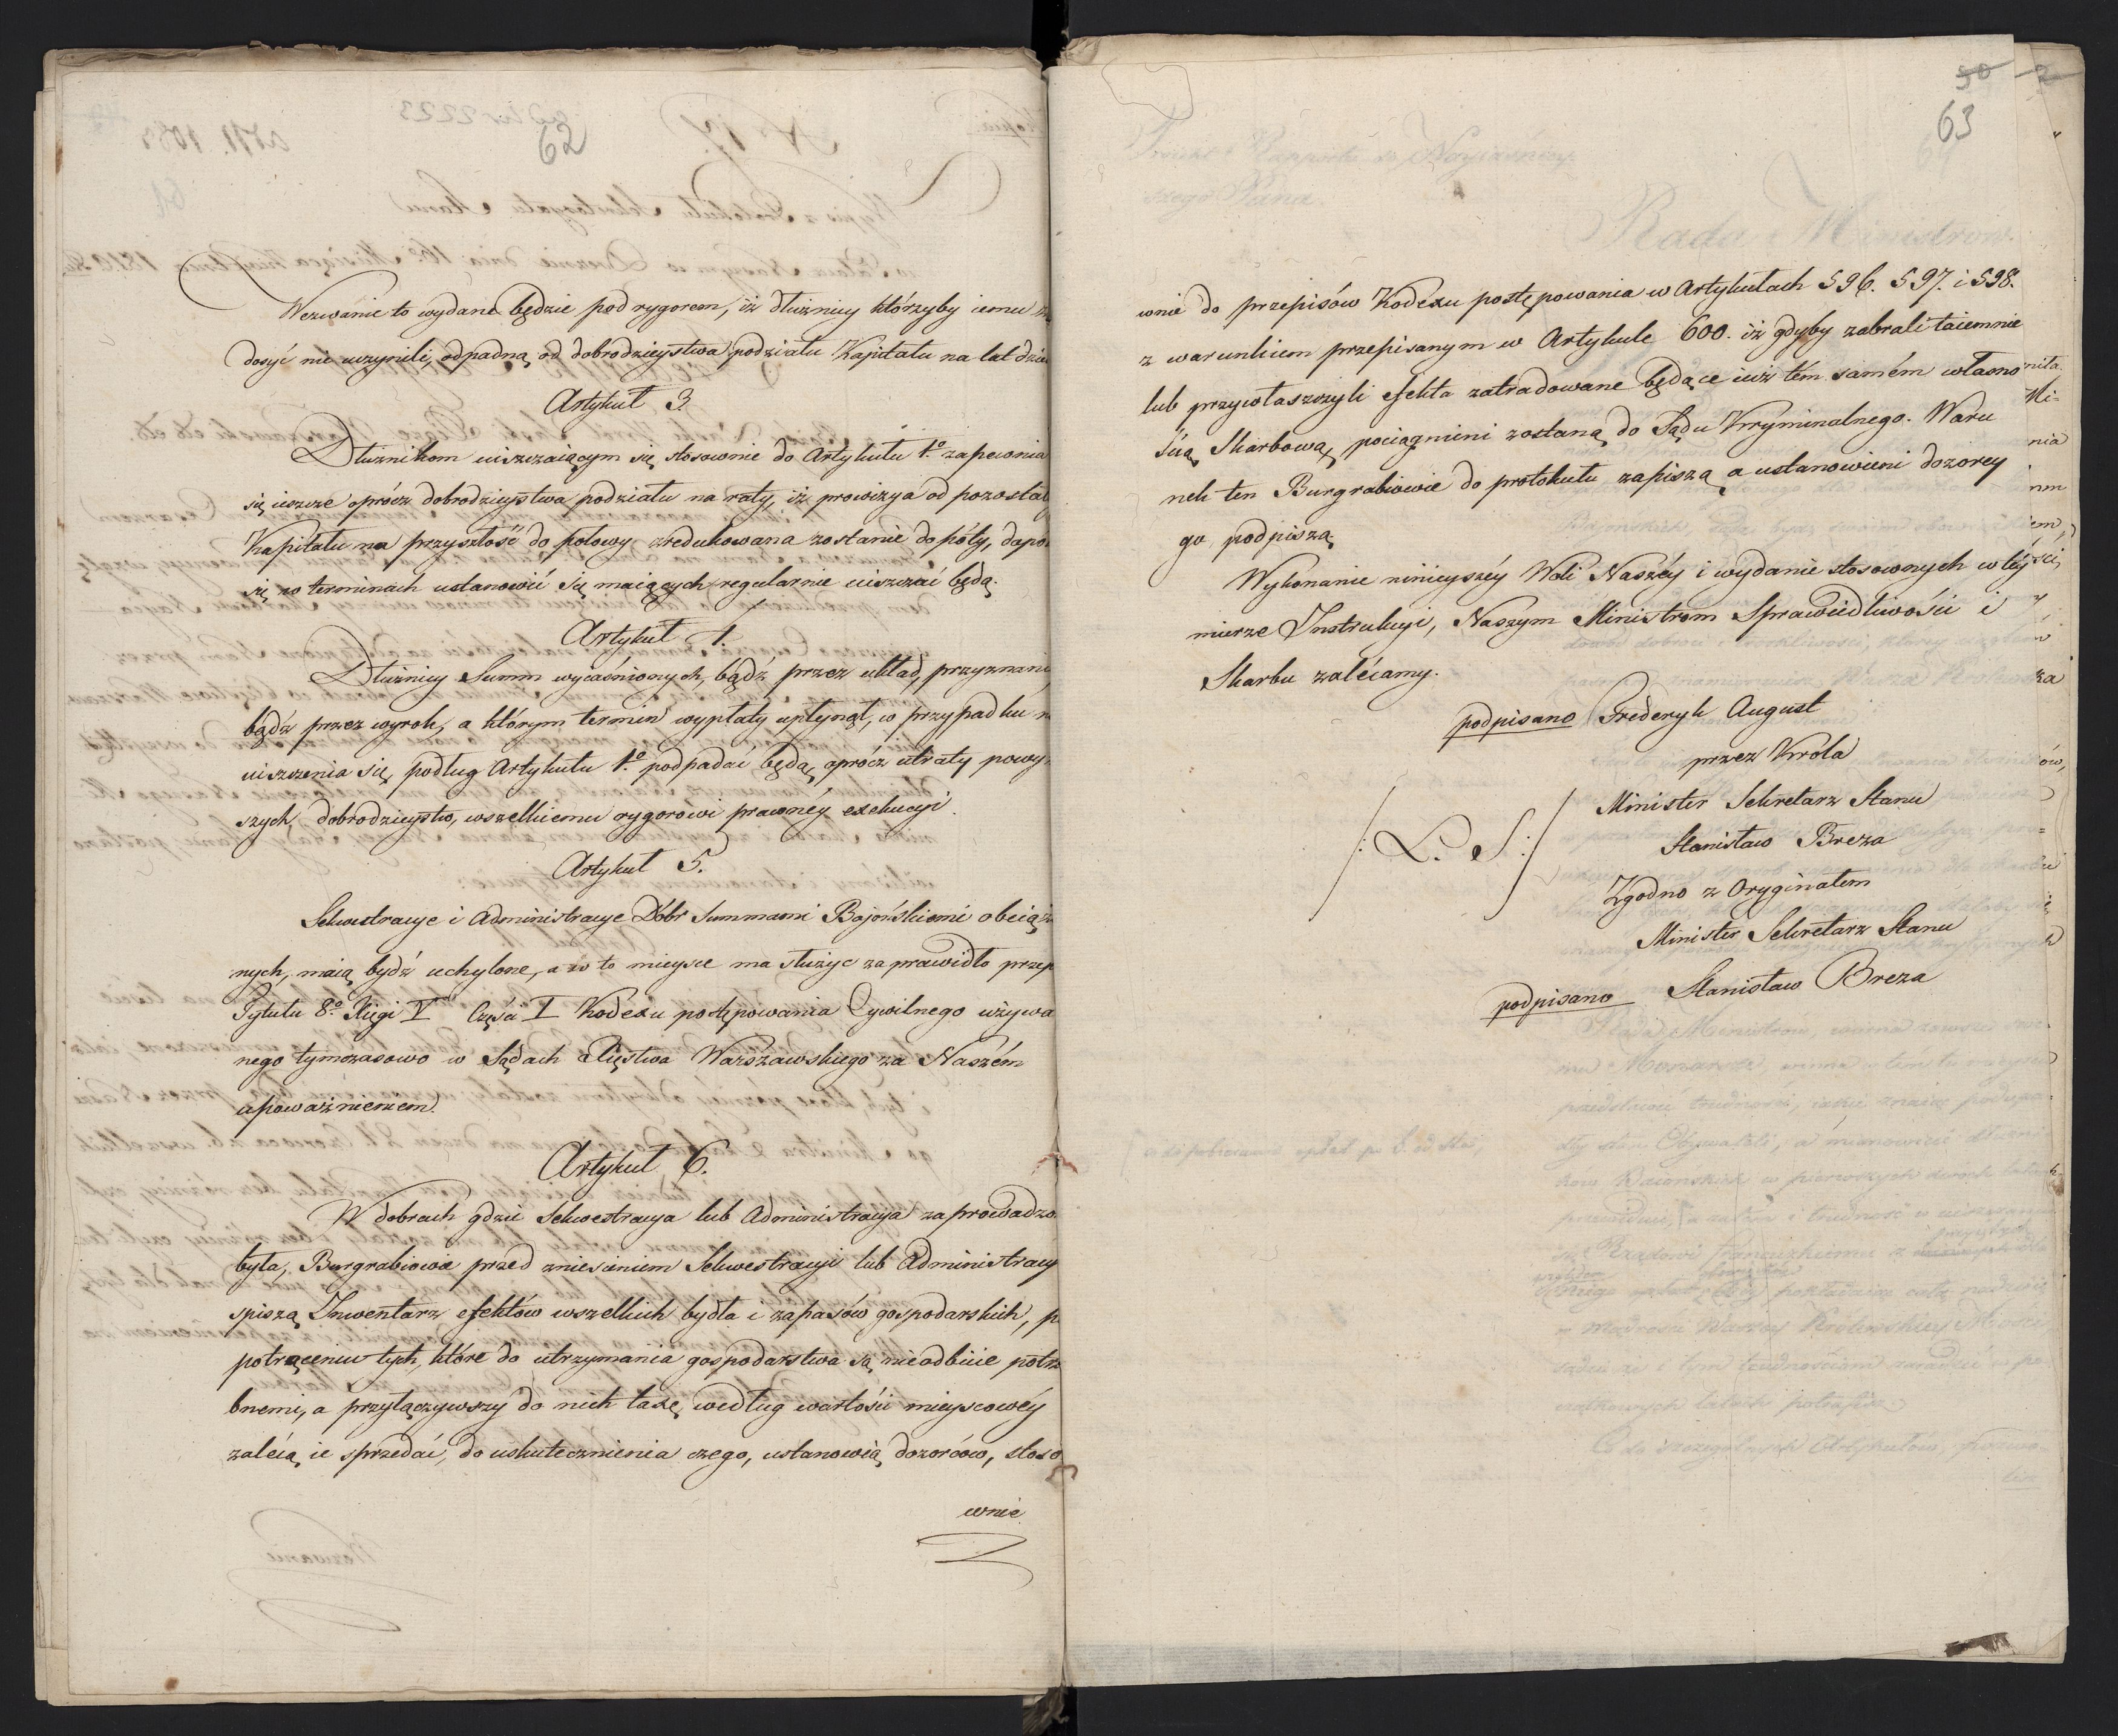 62
Wezwanie to wydane będzie pod rygorem, iż dłużnicy którzyby iemu
dosyć nie uczynili, odpadną od dobrodzieystwa podziału Kapitału na lat
Artykuł 3.
Dłużnikom uiszczaiącym się stosownie do Artykułu 1.º zapewnia
się ieszcze oprócz dobrodzieystwa podziału na raty, iż prowizya od
Kapitału na przyszłość do połowy zredukowana zostanie dopóty,
się w terminach ustanowić się maiących regularnie uiszczać będą.
Artykuł 4.
Dłużnicy Summ wyiaśnionych, bądź przez układ, przyznanie
bądź przez wyrok, a którym termin wypłaty upłynął, w przypadku
uiszczenia się, podług Artykułu 1.º podpadać będą, oprócz utraty powy
szych dobrodzieystw, wszelkiemu rygorowi prawnéy exekucyi.
Artykuł 5.
Sekwestracye i Administracye Dóbr Summami Bajońskiemi obciąż
nych, maią bydź uchylone, a w to mieysce ma służyć za prawidło przep
Tytułu 8.º Xięgi V Części I Kodexu postępowania Cywilnego używa
nego tymczasowo w Sądach Xięstwa Warszawskiego za Naszém
upoważnieniem.
Artykuł 6.
W dobrach gdzie Sekwestracya lub Administracya zaprowadzo
była, Burgrabiowie przed zniesieniem Sekwestracyi lub Administracy
spiszą Inwentarz efektów wszelkich bydła i zapasów gospodarskich, p
potrąceniu tych, które do utrzymania gospodarstwa są nieodbicie potrz
bnemi, a przyłączywszy do nich taxę według wartości mieyscowéy
zalécą ie sprzedać, do uskutecznienia czego, ustanowią dozorców, stoso
wnie
50 2
63
wnie do przepisów Kodexu postępowania w Artykułach 596. 597. i 598.
z warunkiem przepisanym w Artykule 600. iż gdyby zabrali taiemnie
lub przywłaszczyli efekta zatradowane będące iuż tém samém własno
ścią Skarbową, pociągnieni zostaną do Sądu Kryminalnego. Waru
nek ten Burgrabiowie do protokułu zapiszą a ustanowieni dozorcy
go podpiszą.
Wykonanie ninieyszéy Woli Naszéy i wydanie stosownych w téy
mierze Instrukcyi, Naszym Ministrom Sprawiedliwości i
Skarbu zalécamy.
podpisano Frederyk August
przez Króla
Minister Sekretarz Stanu
/: L. S :/ Stanisław Breza
Zgodno z Oryginałem
Minister Sekretarz Stanu
podpisano Stanisław Breza